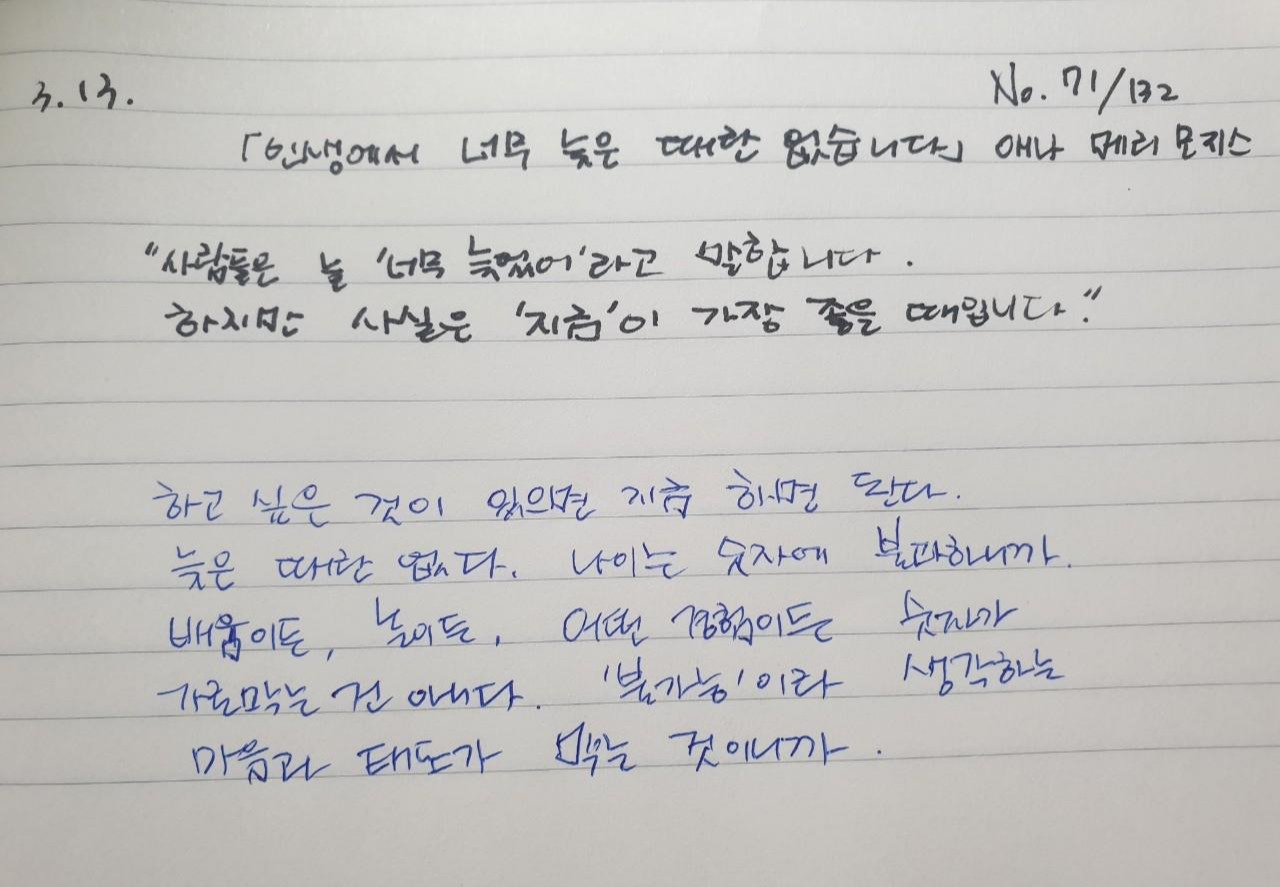 3.13.
No. 71/132
「인생에서 너무 늦은 때란 없습니다」 애나 메리 모지스
"사람들은 늘 '너무 늦었어'라고 말합니다.
하지만 사실은 '지금'이 가장 좋은 때입니다."
하고 싶은 것이 있으면 지금 하면 된다.
늦은 때란 없다. 나이는 숫자에 불과하니까.
배움이든, 놀이든, 어떤 경험이든 숫자가
가로막는 건 아니다. '불가능'이라 생각하는
마음과 태도가 막는 것이니까.